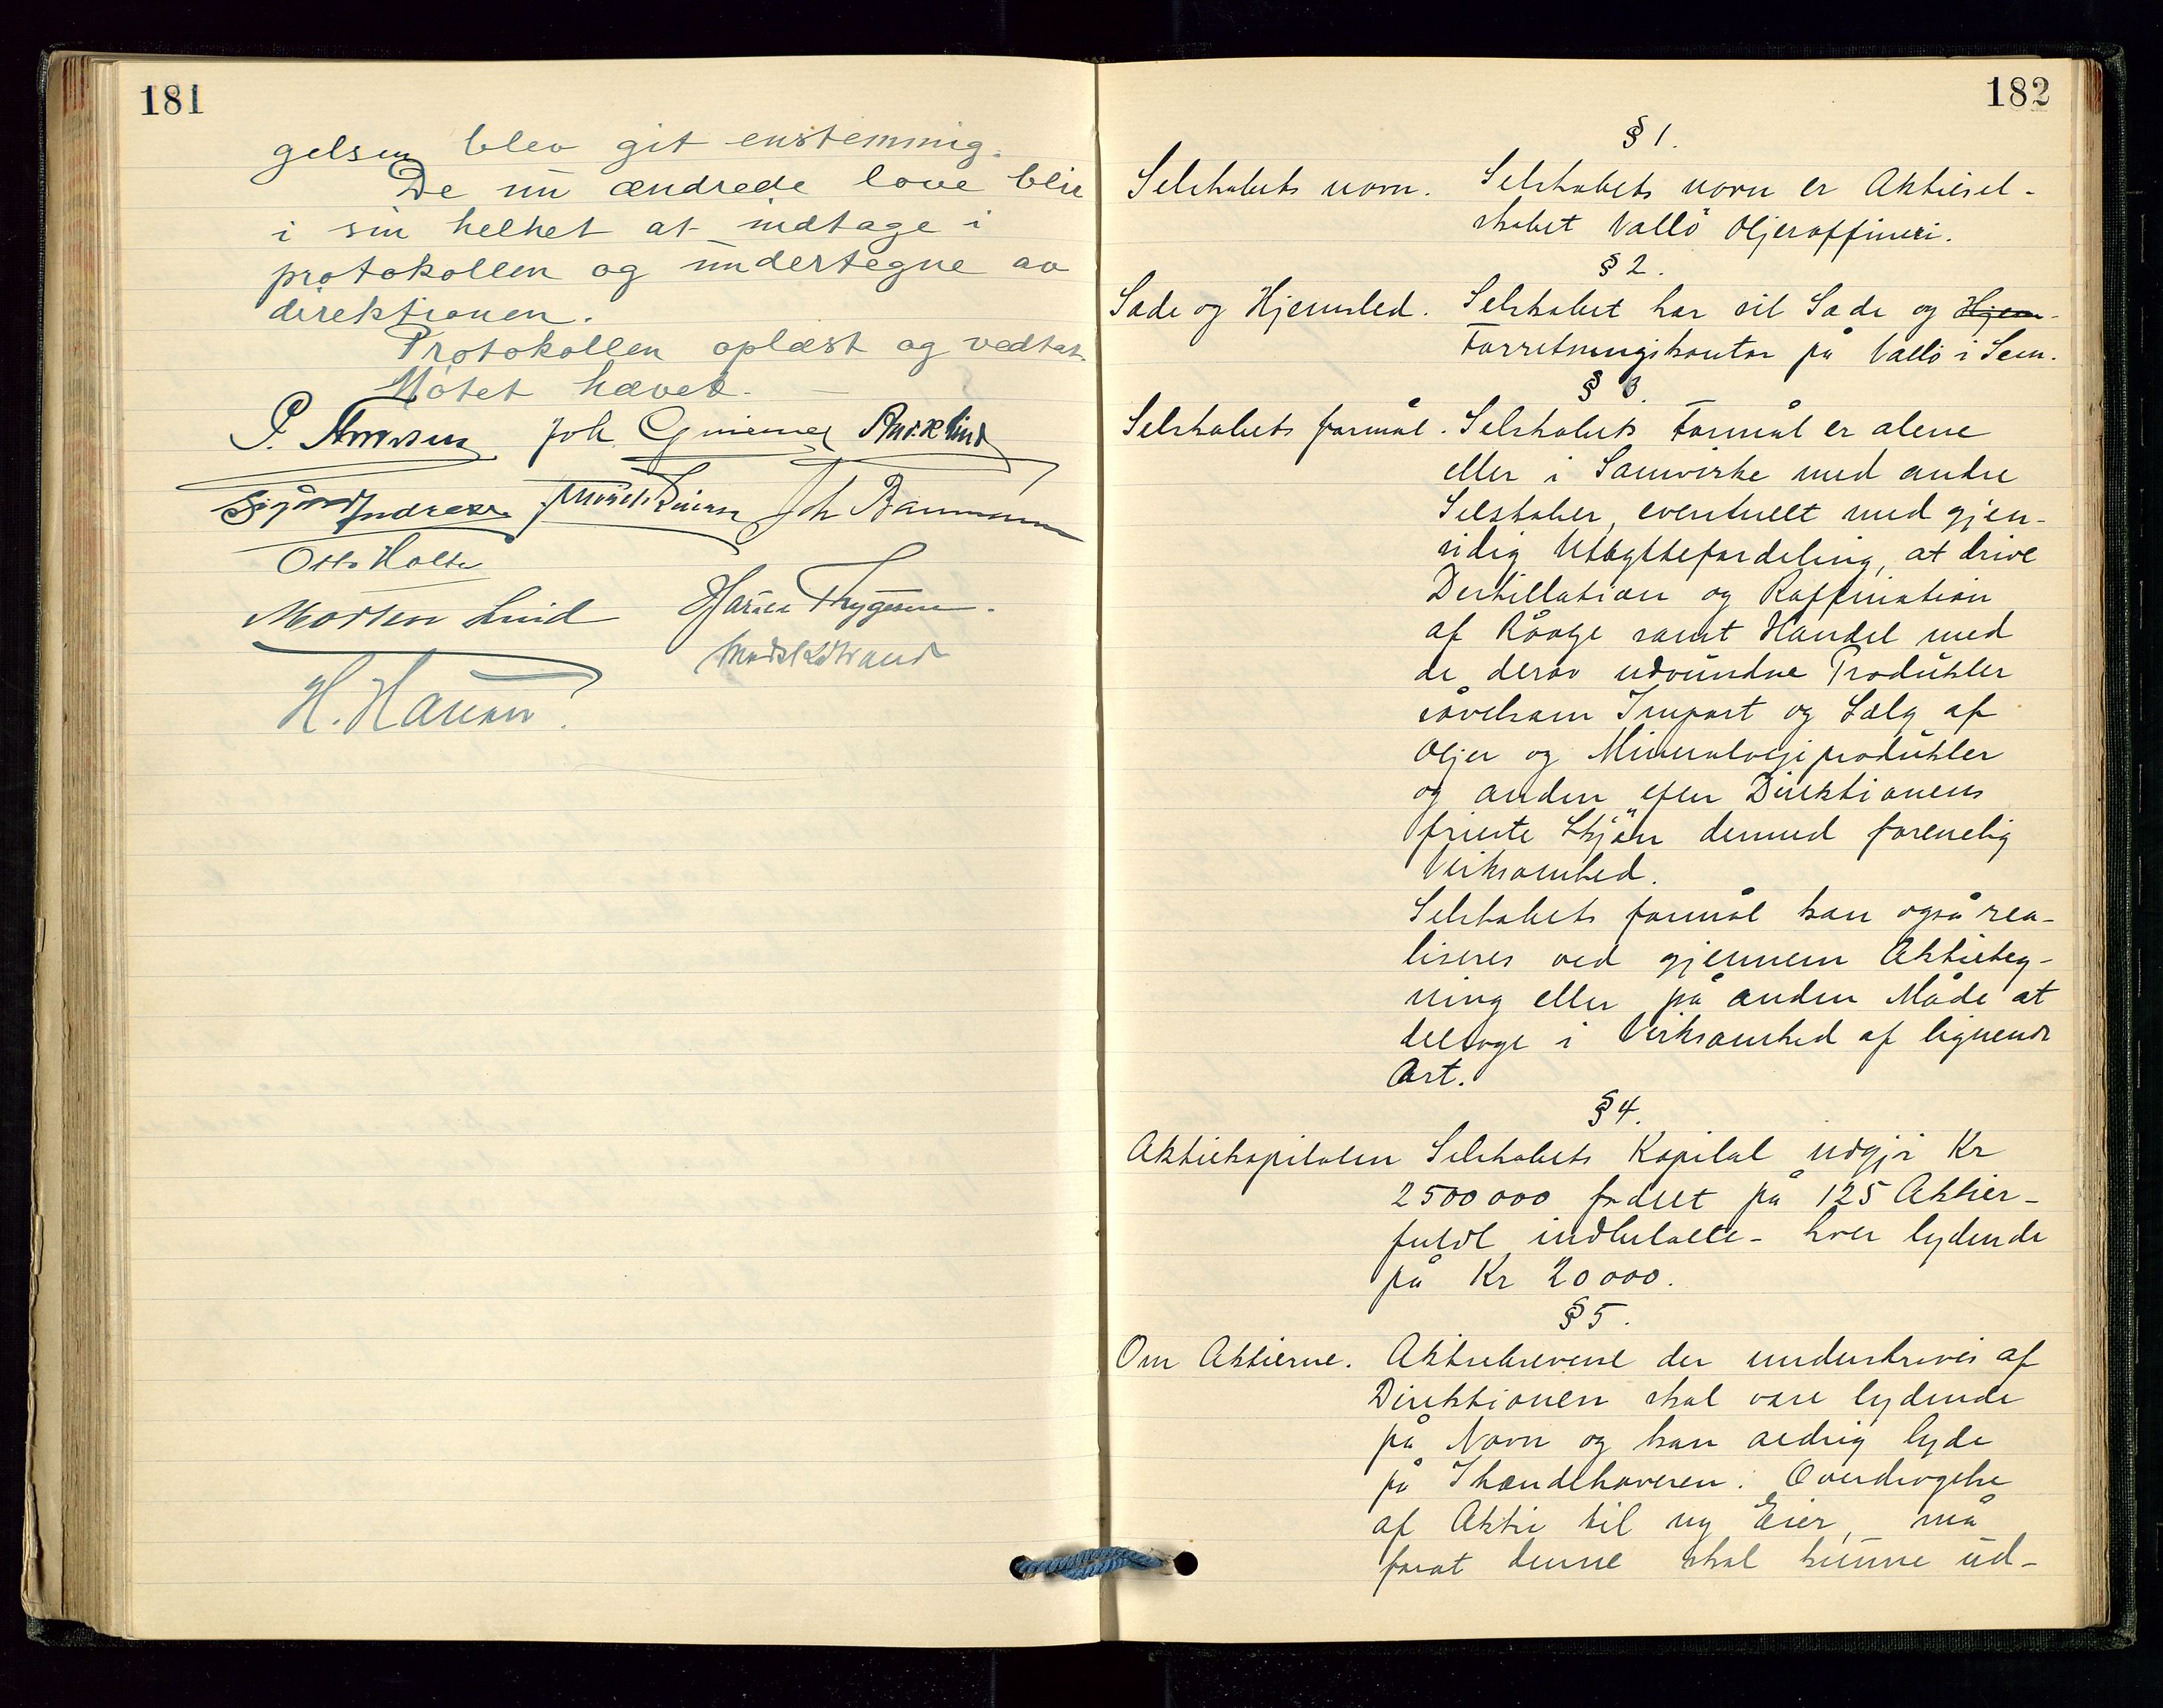 181
gelsen blev git enstemmig.
De nu ændrede love blir
i sin helhet at indtage i
protokollen og undertegne av
direktionen.
Protokollen oplæst og vedtat.
Møtet hævet.
Otto Holte
Morten Lind
H. Hansen.
182
§ 1.
Selskabets navn. Selskabets navn er Aktiesel-
skabet Vallö Oljeraffineri.
§ 2.
Sæde og Hjemsted. Selskabet har sit Sæde og Hjem-
Forretningskontor på Vallö i Sem.
§ 3.
Selskabets formål. Selskabets Formål er alene
eller i Samvirke med andre
Selskaber, eventuelt med gjen-
sidig Utbyttefordeling, at drive
Destillation og Raffination
af Råolje samt Handel med
de derav udvundne Produkter
såvelsom Import og Salg af
Oljer og Mineraloljeprodukter
og anden efter Direktionens
frieste Skjön dermed forenelig
Virksomhed.
Selskabets formål kan også rea-
liseres ved gjennem Aktieteg-
ning eller på anden Måde at
deltage i Virksomhed af lignende
Art.
§ 4.
Aktiekapitalen Selskabets Kapital udgjör Kr
2500000 fordelt på 125 Aktier-
fuldt indbetalte - hver lydende
på Kr 20000.
§ 5.
Om Aktierne. Aktiebrevene der underskrives af
Direktionen skal være lydende
på Navn og kan aldrig lyde
på Ihændehaveren. Overdragelse
af Aktie til ny Eier, må
forat denne skal kunne ud-